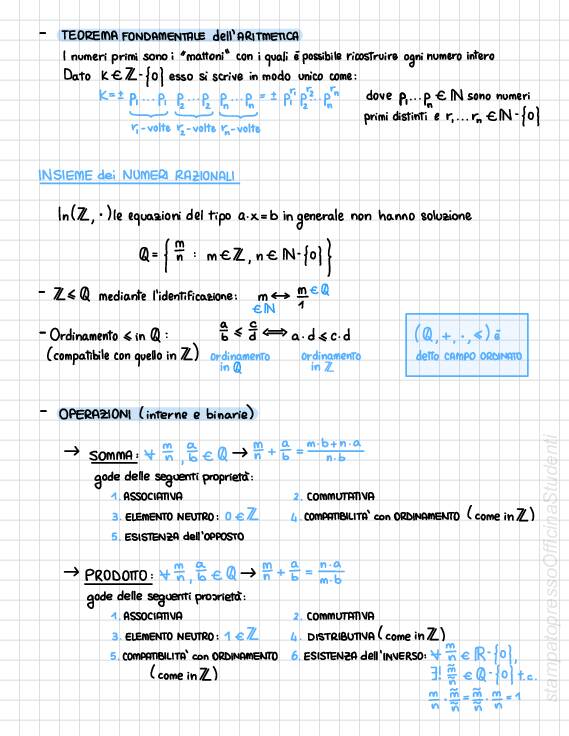 - TEOREMA FONDAMENTALE dell'ARITMETICA
I numeri primi sono i "mattoni" con i quali è possibile ricostruire ogni numero intero
Dato K ∈ ℤ-{0} esso si scrive in modo unico come:
K = ± p₁...p₁ p₂...p₂ pₙ...pₙ = ± p₁^r₁ p₂^r₂ ... pₙ^rₙ
r₁-volte r₂-volte rₙ-volte
dove p₁...pₙ ∈ ℕ sono numeri
primi distinti e r₁...rₙ ∈ ℕ-{0}
INSIEME dei NUMERI RAZIONALI
In (ℤ, ·) le equazioni del tipo a·x=b in generale non hanno soluzione
ℚ = { m/n : m ∈ ℤ, n ∈ ℕ-{0} }
- ℤ ≤ ℚ mediante l'identificazione: m ↔ m/1 ∈ ℚ
∈ ℕ
- Ordinamento ≤ in ℚ: a/b ≤ c/d ⟺ a·d ≤ c·d
(compatibile con quello in ℤ) ordinamento in ℚ ordinamento in ℤ
(ℚ, +, ·, ≤) è
detto CAMPO ORDINATO
- OPERAZIONI (interne e binarie)
→ SOMMA: ∀ m/n, a/b ∈ ℚ → m/n + a/b = m·b+n·a/n·b
gode delle seguenti proprietà:
1. ASSOCIATIVA 2. COMMUTATIVA
3. ELEMENTO NEUTRO: 0 ∈ ℤ 4. COMPATIBILITA' con ORDINAMENTO (come in ℤ)
5. ESISTENZA dell'OPPOSTO
→ PRODOTTO: ∀ m/n, a/b ∈ ℚ → m/n + a/b = n·a/m·b
gode delle seguenti proprietà:
1. ASSOCIATIVA 2. COMMUTATIVA
3. ELEMENTO NEUTRO: 1 ∈ ℤ 4. DISTRIBUTIVA (come in ℤ)
5. COMPATIBILITA' con ORDINAMENTO 6. ESISTENZA dell'INVERSO: ∀ m/n ∈ ℝ-{0},
(come in ℤ) ∃! m̃/ñ ∈ ℚ-{0} t.c.
m/n · m̃/ñ = m̃/ñ · m/n = 1
stampatopressoOfficinaStudenti